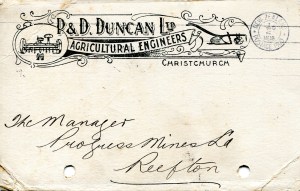 P. & D. DUNCAN LTD
AGRICULTURAL ENGINEERS
CHRISTCHURCH
The Manager
Progress Mines Ld
Reefton